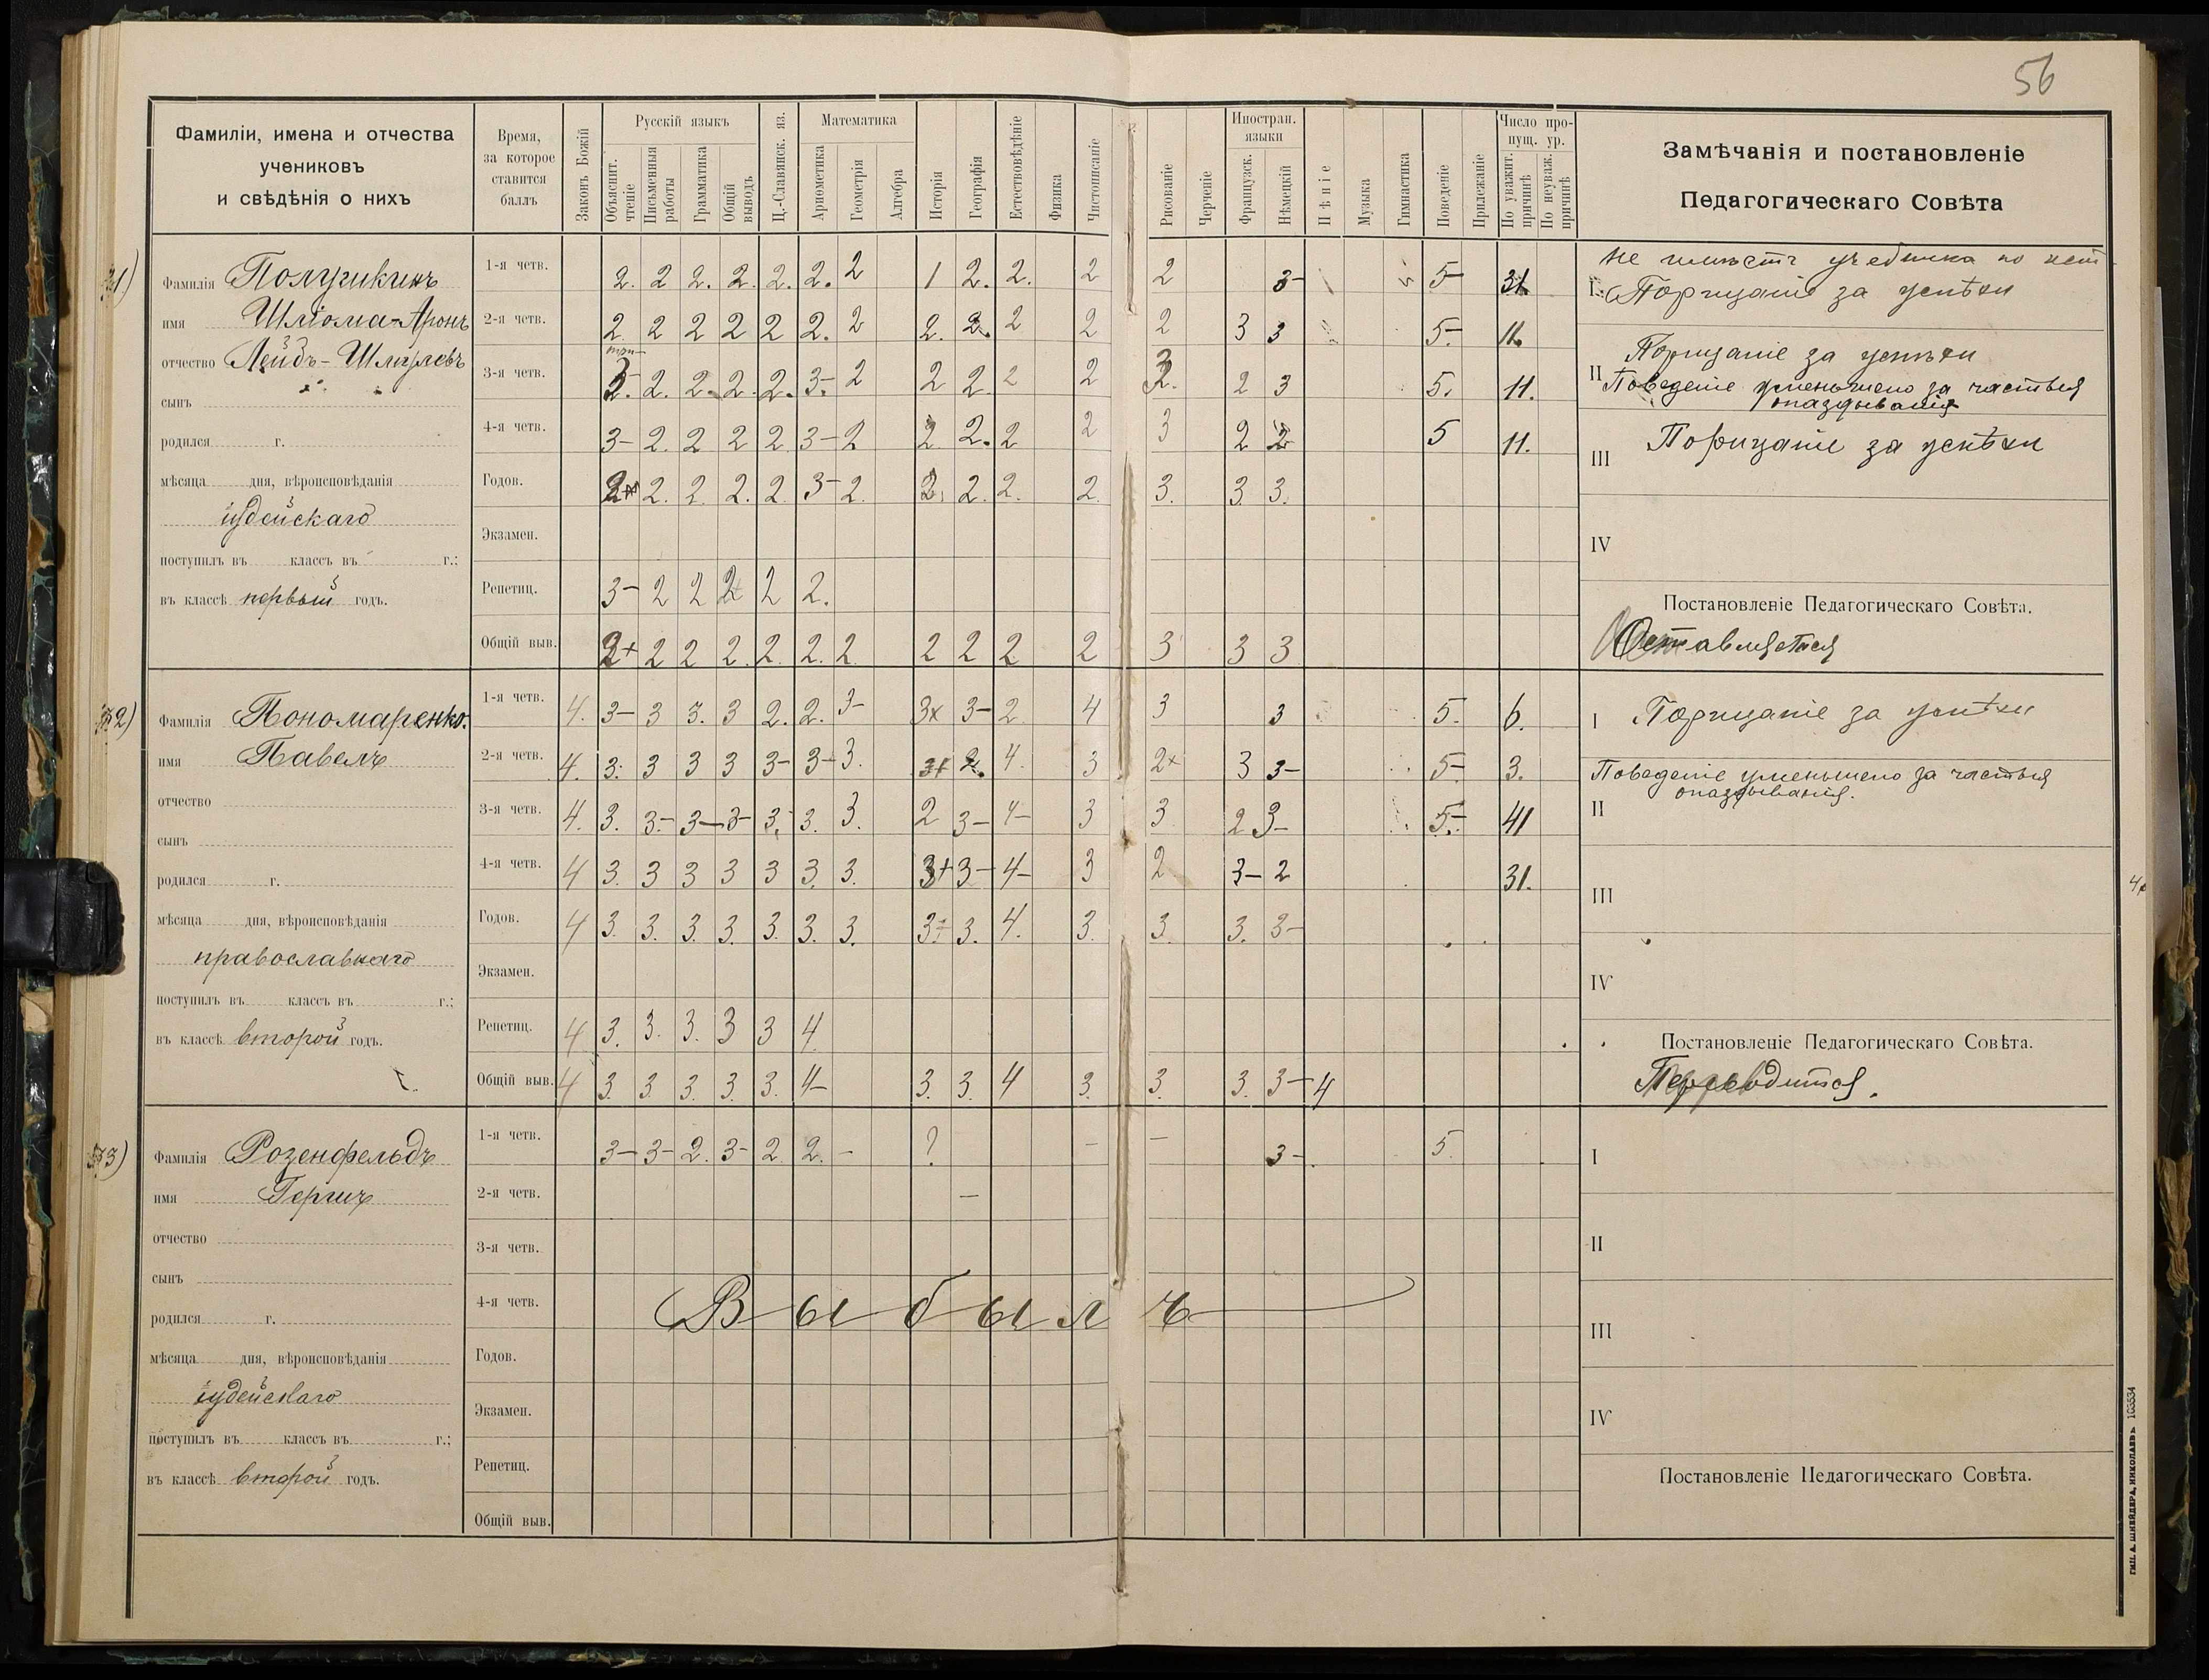 56
Фамиліи, имена и отчества
учениковъ
и свѣдѣнія о нихъ
Время,
за которое
ставится
баллъ
Законъ Божій
Русскій языкъ
Объяснит. чтеніе
Письменныя работы
Грамматика
Общій выводъ
Ц.-Славянск. яз.
Математика
Ариѳметика
Геометрія
Алгебра
Исторія
Географія
Естествовѣдѣніе
Физика
Чистописаніе
Рисованіе
Черченіе
Иностран. языки
Французск.
Нѣмецкій
Пѣніе
Музыка
Гимнастика
Поведеніе
Прилежаніе
Число пропущ. ур.
По уважит. причинѣ
По неуваж. причинѣ
Замѣчанія и постановленіе
Педагогическаго Совѣта
31)
Фамилія
имя Шліома-Аронъ
отчество
сынъ
родился г.
мѣсяца дня, вѣроисповѣданія
іудейскаго
поступилъ въ классъ въ г.;
въ классѣ первый годъ.
1-я четв. 2. 2 2. 2. 2. 2. 2 1 2. 2. 2 2 3- 5-
2-я четв. 2 2 2 2 2 2. 2 2. 2. 2 2 2 3 3 5-
3-я четв. 2. 2. 2. 2. 3- 2 2 2. 2 2 2 3 5. 11.
4-я четв. 3- 2. 2 2 2 3- 2 2 2. 2 2 3 2 2 5 11.
Годов. 2. 2. 2. 2. 3- 2. 2. 2. 2. 2. 3. 3. 3.
Экзамен.
Репетиц. 3- 2 2 2 2 2.
Общій выв. 2+ 2 2 2. 2. 2. 2. 2 2 2 2 3 3 3
не имѣетъ учебника по
I. Порицаніе за успѣхи
Порицаніе за успѣхи
II Поведеніе уменьшено за частыя
опаздыванія
III Порицаніе за успѣхи
IV
Постановленіе Педагогическаго Совѣта.
Оставляется
32)
Фамилія Пономаренко.
имя Павелъ
отчество
сынъ
родился г.
мѣсяца дня, вѣроисповѣданія
православнаго
поступилъ въ классъ въ г.;
въ классѣ второй годъ.
1-я четв. 4. 3- 3 3. 3 2. 2. 3- 3x 3- 2 4 3 3 5. 6.
2-я четв. 4. 3. 3 3 3 3- 3- 3. 3+ 2. 4. 3 2x 3 3- 5- 3.
3-я четв. 4. 3. 3.- 3- 3- 3. 3. 3. 2 3- 4- 3 3 2 3- 5- 41
4-я четв. 4 3. 3 3 3 3 3. 3. 3+ 3- 4- 3 2 3- 2 31.
Годов. 4 3. 3. 3. 3. 3. 3. 3. 3. 3. 4. 3. 3. 3. 3-
Экзамен.
Репетиц. 4 3. 3. 3. 3 3 4
Общій выв. 4 3. 3. 3. 3. 3. 4- 3. 3. 4 3. 3. 3. 3- 4
I Порицаніе за успѣхи
Поведеніе уменьшено за частыя
опаздыванія.
II
III
IV
Постановленіе Педагогическаго Совѣта.
Переводится.
33)
Фамилія Розенфельдъ
имя Гершъ
отчество
сынъ
родился г.
мѣсяца дня, вѣроисповѣданія
іудейскаго
поступилъ въ классъ въ г.;
въ классѣ второй годъ.
1-я четв. 3- 3- 2. 3- 2. 2. - ? - - 3- 5.
2-я четв. -
3-я четв.
4-я четв. Выбылъ
Годов.
Экзамен.
Репетиц.
Общій выв.
I
II
III
IV
Постановленіе Педагогическаго Совѣта.
ТИП. А. ШНЕЙДЕРА, НИКОЛАЕВЪ 103534